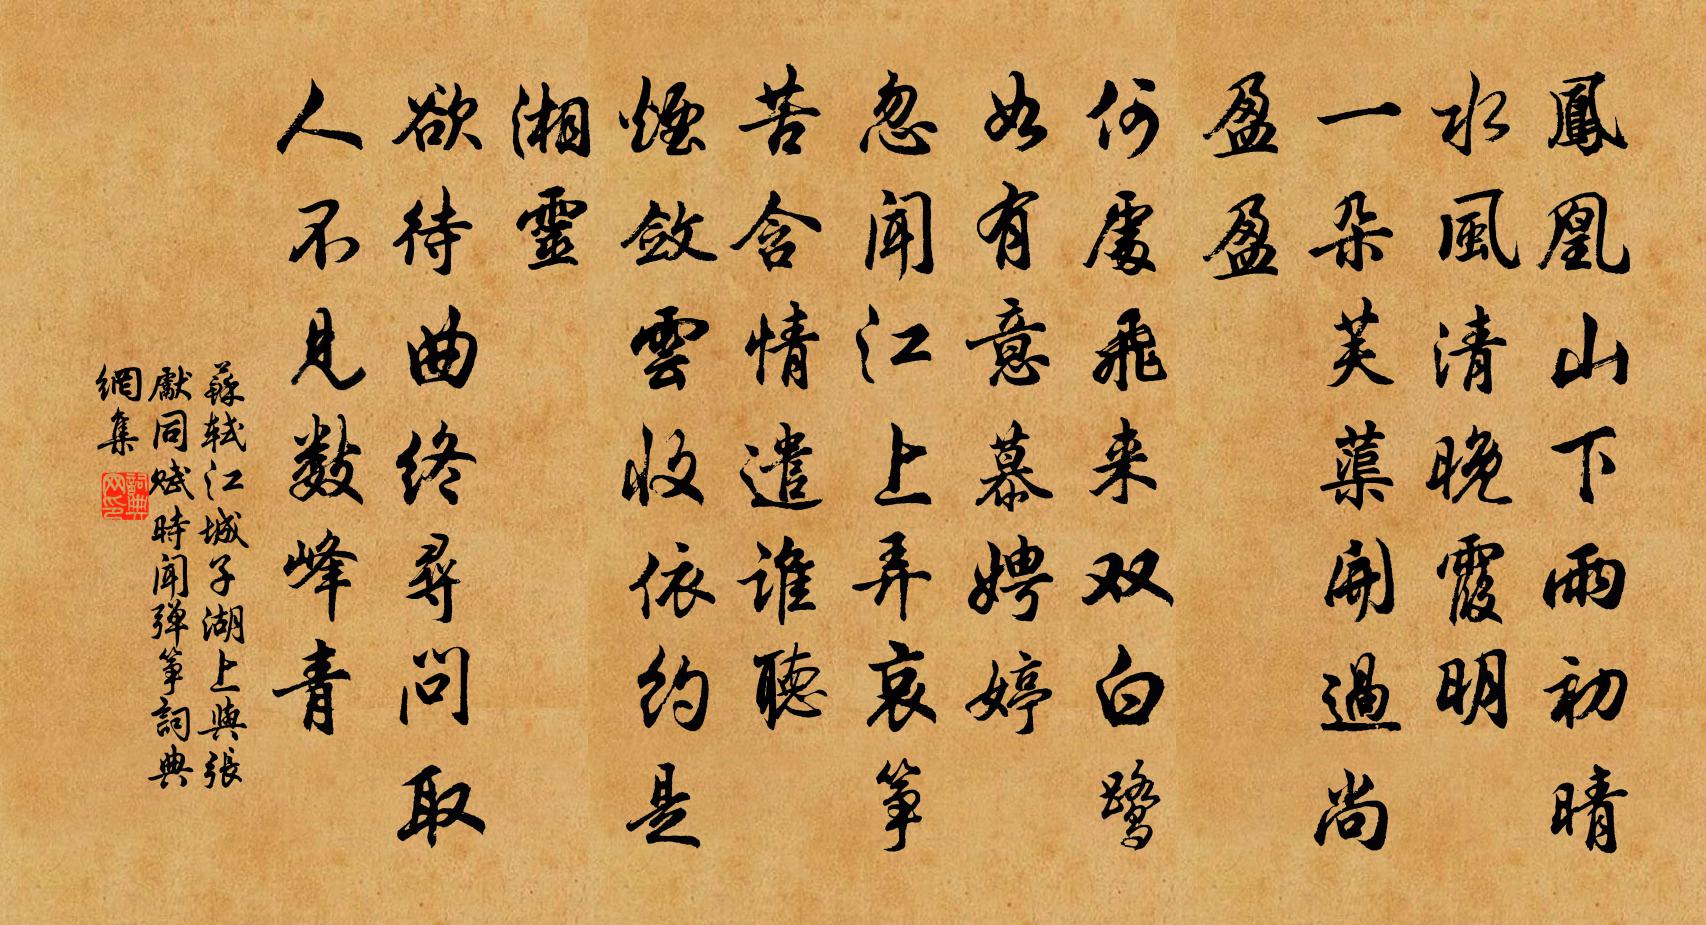 鳳凰山下雨初晴
水風清晚霞明
一朵芙蕖開過尚
盈盈
何處飛来双白鷺
如有意慕娉婷
忽聞江上弄哀筝
苦含情遣誰聽
煙斂雲收依約是
湘靈
欲待曲终尋問取
人不見数峰青
蘇軾江城子湖上與張
獻同賦時闻弹筝詞典
網集
詞典网印